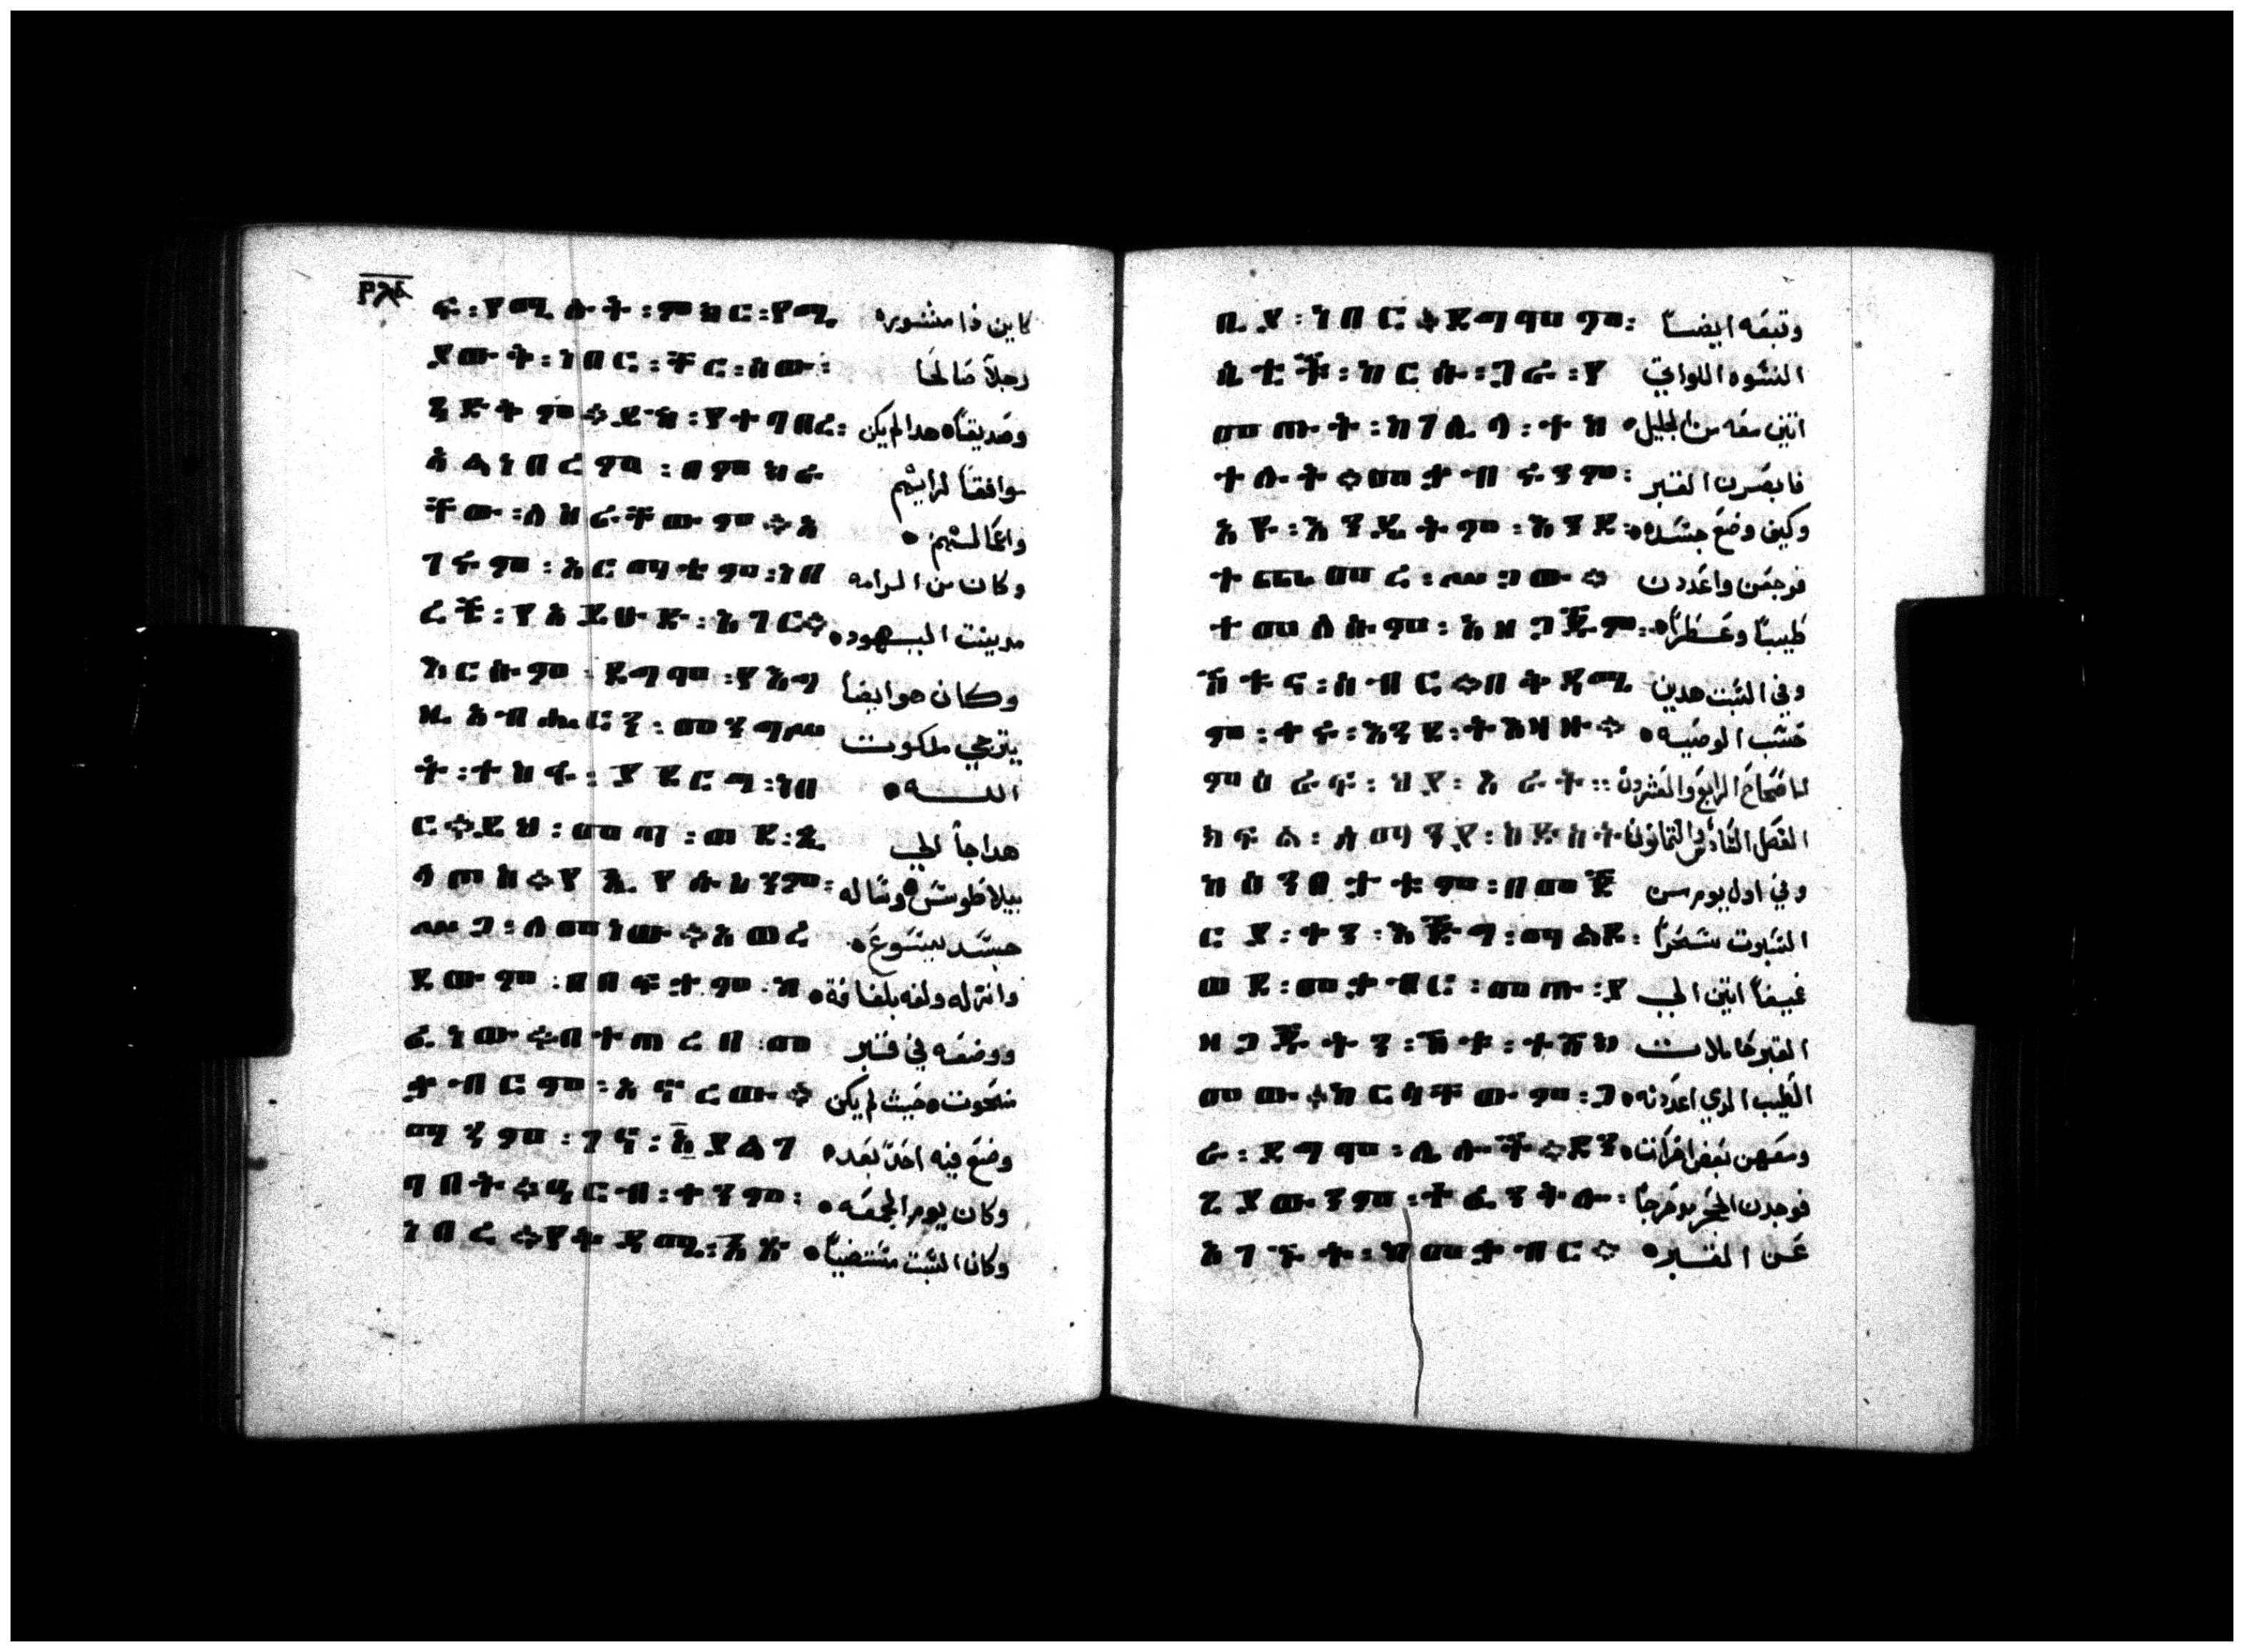 ፺፮
ፍ፡የሚሉት፡ምክር፡የሚ كاين ذا مشوره
ያውቅ፡ነበር፡ቸር፡ሰው፡ رجلاً صَالحا
ጻድቅም።ይኽ፡የተግባረ፡ وصديقاً هدا لم يكن
አልነበረም፡በምክሩ موافقاً لرايتهم
ቸው፡ሰዝሩቸውም።አ واعمالهم
ገሩም፡አርማቴም፡ነበ وكان من الرامه
ረች፡የአይሁድ፡አገር። مدينت اليهود
እርሱም፡ደግሞም፡የእግ وكان هو ايضاً
ዚአብሔርን፡መንግሥ يترجي ملكوت
ት፡ተስፋ፡ያደርግ፡ነበ اللـه
ር።ይህ፡መጣ፡ወደ፡ጲ هدا جاً الي
ላጦስ።የኢየሱስንም፡ بيلاطوس وسَاله
ሥጋ፡ለመነው።አወረ جسَد يسَوعَ
ደውም፡በበፍታም፡ከ وانزله ولفه بلفافة
ፈነው።በተጠረበ፡መ ووضعَه في قبر
ቃብርም፡አኖረው። منحوت حَيث لم يكن
ማንም፡ገና፡እያልገ وضعَ فيه احدٌ بَعَد
ባበት።ዓርብ፡ተንም፡ وكان يوم الجمعَه
ነበረ።የቅዳሜ፡አጥ وكان السَبت
ቢያ፡ነበር።ደግሞም፡ وتبعَه ايضاً
ሴቶች፡ከርሱ፡ጋራ፡የ النسوه اللواتي
መጡት፡ከገሊላ፡ተከ اتين معَه من الجليل
ተሉት።መቃብሩንም፡ فابصَرن القبر
አዩ፡እንዲቱም፡እንደ وكيف وضعَ جسَده
ተጨመረ፡ሥጋው። فرجعَن واعَددن
ተመለሱም፡አዘጋጁም፡ طيباً وعَطراً
ሽቱና፡ሰብር።በቅዳሜ وفي السَبت هدين
ም፡ተዉ፡እንደ፡ትእዛዙ። حَسَب الوصَيه
ምዕራፍ፡ሀያ፡አራት፡፡ الاصَحاحَ الرابعَ والعَشرون
ክፍል፡ሰማንያ፡ከድስት الفصَل السَادسَ والثمانون
ከሰንበቶቱም፡በመጀ وفي اول يوم من
ርያ፡ተን፡እጅግ፡ማልደ፡ السَبوت سَحَراً
ወደ፡መቃብር፡መጡ፡ያ عَميقاً اتين الي
ዘጋጁትን፡ሽቱ፡ተሸክ القبر حَاملات
መው።ከርሳቸውም፡ጋ الطيب الدي اعَددنه
ራ፡ደግሞ፡ሌሎች።ደን ومعَهن بعَض اخرَات
ጊያውንም፡ተፈንቅሎ፡ فوجدن الحَجر مدحَرجاً
አገኙት፡ከመቃብር። عَن القبر